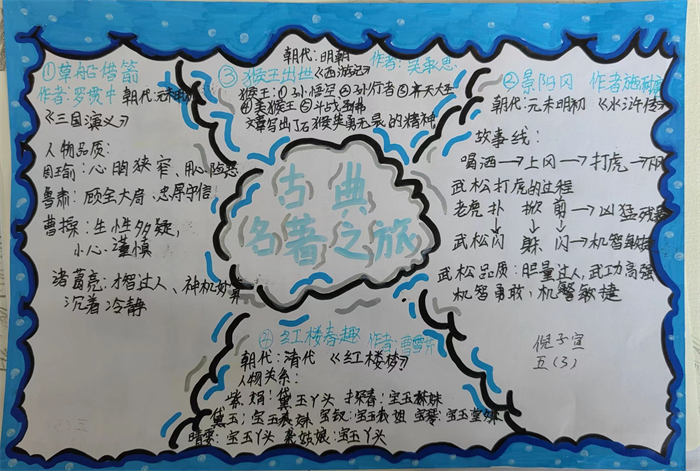 ①草船借箭
作者:罗贯中 朝代:元末明初
《三国演义》
人物品质:
周瑜:心胸狭窄、用心险恶
鲁肃:顾全大局、忠厚守信
曹操:生性多疑,
小心、谨慎
诸葛亮:才智过人、神机妙算
沉着冷静
朝代:明朝 作者:吴承恩
③猴王出世《西游记》
猴王:①孙悟空②孙行者③齐天大圣
④美猴王⑤斗战胜佛
文章写出了石猴英勇无畏的精神
②景阳冈 作者施耐庵
朝代:元末明初 《水浒传》
故事线:
喝酒→上冈→打虎→下冈
武松打虎的过程
老虎 扑 掀 剪→凶猛残暴
↓ ↓ ↓
武松闪 躲 闪→机智敏捷
武松品质:胆量过人,武功高强
机智勇敢,机警敏捷
古典
名著之旅
④红楼春趣 作者:曹雪芹
朝代:清代 《红楼梦》
人物关系:
紫鹃:黛玉丫头 探春:宝玉妹妹
黛玉:宝玉表妹 宝钗:宝玉表姐 宝琴:宝玉堂妹
晴雯:宝玉丫头 袭姑娘:宝玉丫头
倪子宣
五(3)